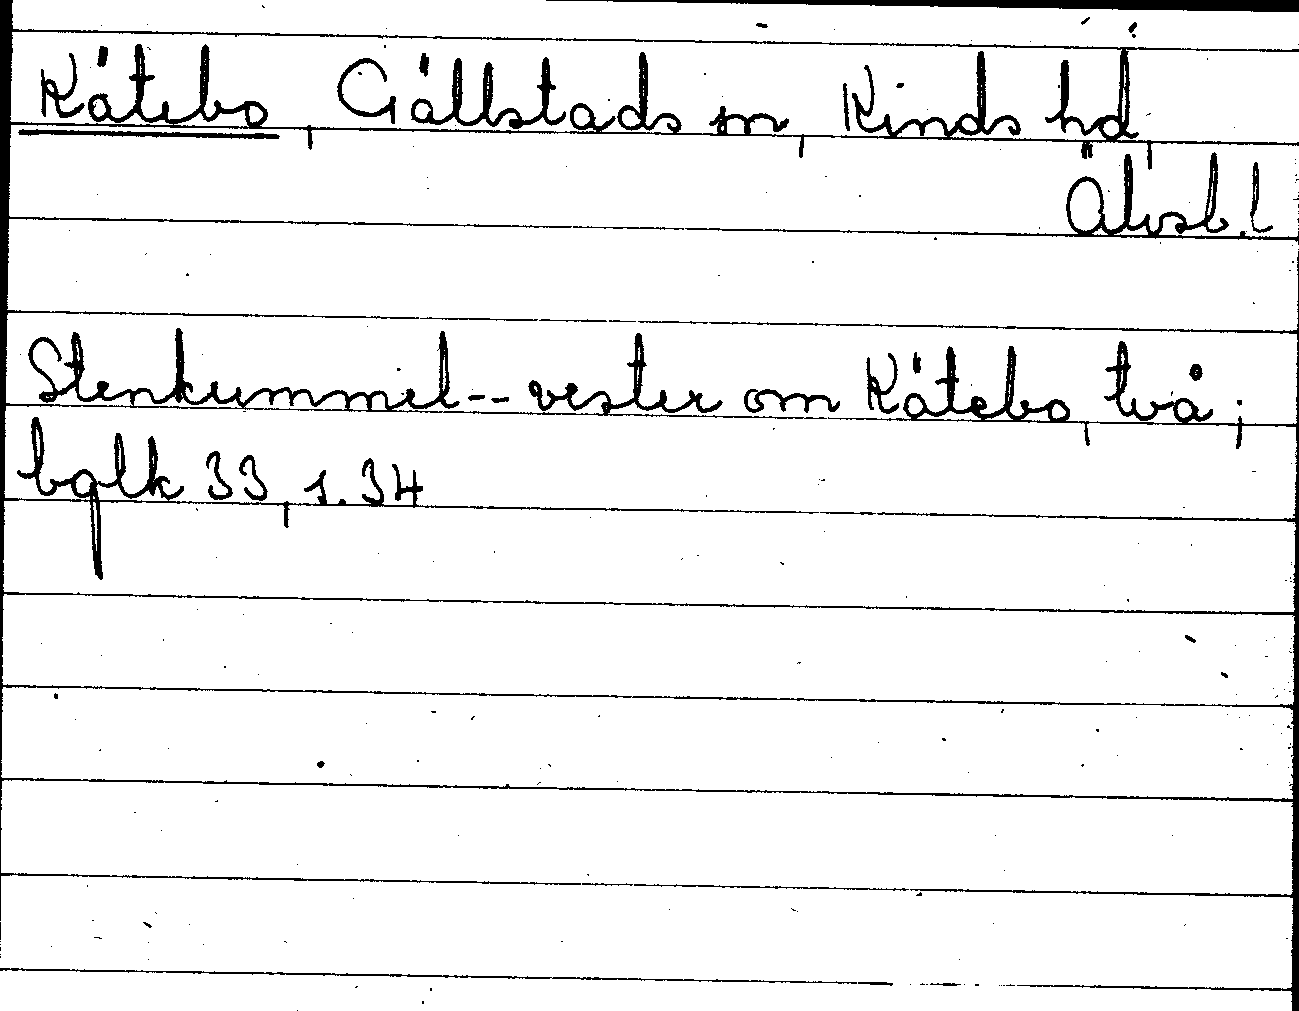 Kätebo, Gällstads sn, Kinds hd,
Älvsb. l
Stenkummel -- vester om Kätebo, två;
bglk 33, s. 34